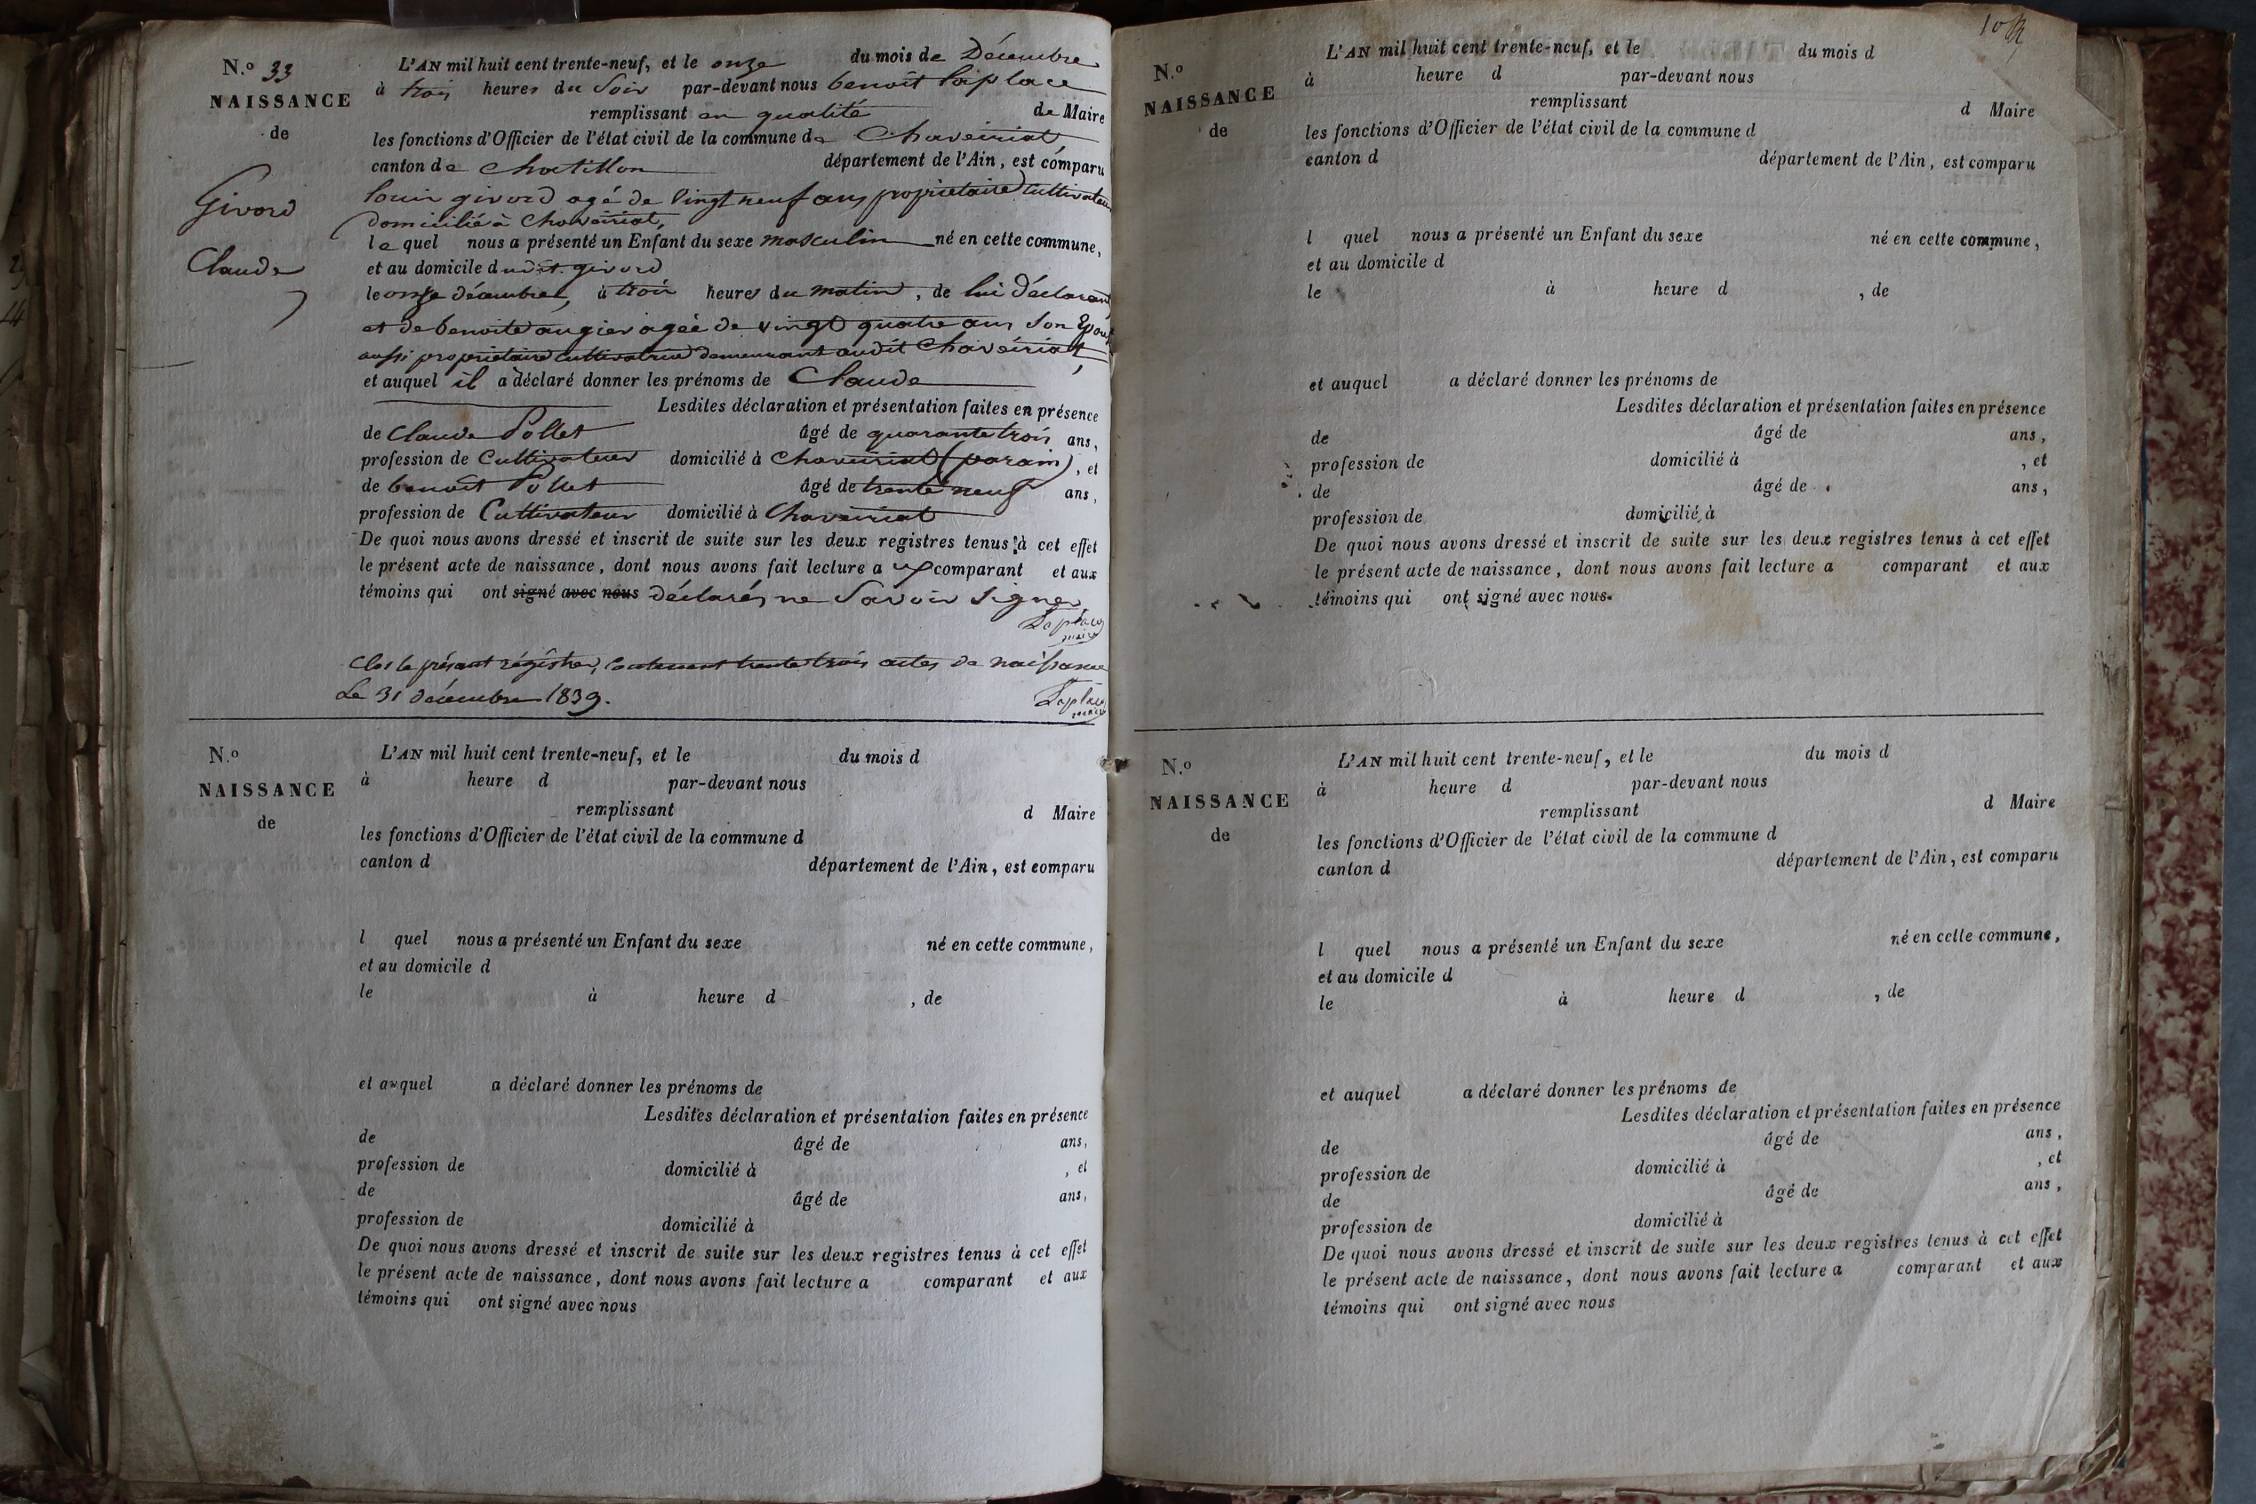 N.º 33
NAISSANCE
de
Givord
Claude
L'AN mil huit cent trente-neuf, et le onze du mois de Décembre
à trois heures du Soir par-devant nous benoit laplace
remplissant en qualité de Maire
les fonctions d'Officier de l'état civil de la commune de Chaveiriat
canton de Chatillon département de l'Ain, est comparu
louis givord agé de vingt neuf ans propriétaire cultivateur
domicilié à Chaveiriat,
lequel nous a présenté un Enfant du sexe masculin né en cette commune,
et au domicile dudit givord
le onze décembre, à trois heures du matin, de lui déclarant
et de benoite augier agée de vingt quatre ans Son Epouse
aussi propriétaire cultivatrice demeurant audit Chaveiriat,
et auquel il a déclaré donner les prénoms de Claude
Lesdites déclaration et présentation faites en présence
de Claude Pollet âgé de quarante trois ans,
profession de Cultivateur domicilié à Chaveiriat (parain), et
de benoit Pollet âgé de trente neuf ans,
profession de Cultivateur domicilié à Chaveiriat
De quoi nous avons dressé et inscrit de suite sur les deux registres tenus à cet effet
le présent acte de naissance, dont nous avons fait lecture a comparant et aux
témoins qui ont signé avec nous déclarés ne Savoir Signer
Laplace
maire
Clos le présent régistre, contenant trente trois actes de naissance
Le 31 décembre 1839.
Laplace
maire
N.º
NAISSANCE
de
L'AN mil huit cent trente-neuf, et le du mois d
à heure d par-devant nous
remplissant d Maire
les fonctions d'Officier de l'état civil de la commune d
canton d département de l'Ain, est comparu
l quel nous a présenté un Enfant du sexe né en cette commune,
et au domicile d
le à heure d , de
et auquel a déclaré donner les prénoms de
Lesdites déclaration et présentation faites en présence
de âgé de ans,
profession de domicilié à , et
de âgé de ans,
profession de domicilié à
De quoi nous avons dressé et inscrit de suite sur les deux registres tenus à cet effet
le présent acte de naissance, dont nous avons fait lecture a comparant et aux
témoins qui ont signé avec nous
N.º
NAISSANCE
de
L'AN mil huit cent trente-neuf, et le du mois d
à heure d par-devant nous
remplissant d Maire
les fonctions d'Officier de l'état civil de la commune d
canton d département de l'Ain, est comparu
l quel nous a présenté un Enfant du sexe né en cette commune,
et au domicile d
le à heure d , de
et auquel a déclaré donner les prénoms de
Lesdites déclaration et présentation faites en présence
de âgé de ans,
profession de domicilié à , et
de âgé de ans,
profession de domicilié à
De quoi nous avons dressé et inscrit de suite sur les deux registres tenus à cet effet
le présent acte de naissance, dont nous avons fait lecture a comparant et aux
témoins qui ont signé avec nous.
N.º
NAISSANCE
de
L'AN mil huit cent trente-neuf, et le du mois d
à heure d par-devant nous
remplissant d Maire
les fonctions d'Officier de l'état civil de la commune d
canton d département de l'Ain, est comparu
l quel nous a présenté un Enfant du sexe né en cette commune,
et au domicile d
le à heure d , de
et auquel a déclaré donner les prénoms de
Lesdites déclaration et présentation faites en présence
de âgé de ans,
profession de domicilié à , et
de âgé de ans,
profession de domicilié à
De quoi nous avons dressé et inscrit de suite sur les deux registres tenus à cet effet
le présent acte de naissance, dont nous avons fait lecture a comparant et aux
témoins qui ont signé avec nous